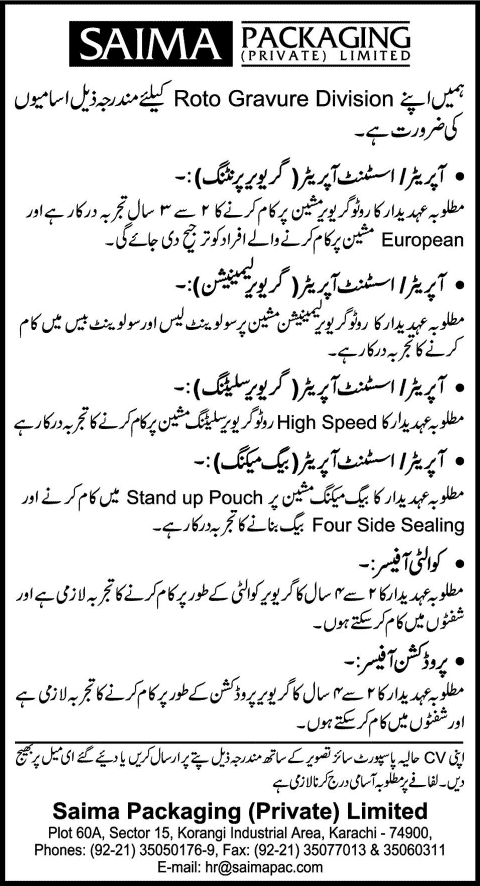 SAIMA PACKAGING
(PRIVATE) LIMITED
ہمیں اپنے Roto Gravure Division کیلئے مندرجہ ذیل اسامیوں
کی ضرورت ہے۔
• آپریٹر/ اسسٹنٹ آپریٹر (گریویر پرنٹنگ):۔
مطلوبہ عہدیدار کا روٹو گریویر مشین پر کام کرنے کا ۲ سے ۳ سال تجربہ درکار ہے اور
European مشین پر کام کرنے والے افراد کو ترجیح دی جائے گی۔
• آپریٹر/ اسسٹنٹ آپریٹر (گریویر لیمینیشن):۔
مطلوبہ عہدیدار کا روٹو گریویر لیمینیشن مشین پر سولوینٹ لیس اور سولوینٹ بیس میں کام
کرنے کا تجربہ درکار ہے۔
• آپریٹر/ اسسٹنٹ آپریٹر (گریویر سلیٹنگ):۔
مطلوبہ عہدیدار کا High Speed روٹو گریویر سلیٹنگ مشین پر کام کرنے کا تجربہ درکار ہے
• آپریٹر/ اسسٹنٹ آپریٹر (بیگ میکنگ):۔
مطلوبہ عہدیدار کا بیگ میکنگ مشین پر Stand up Pouch میں کام کرنے اور
Four Side Sealing بیگ بنانے کا تجربہ درکار ہے۔
• کوالٹی آفیسر:۔
مطلوبہ عہدیدار کا ۲ سے ۴ سال کا گریویر کوالٹی کے طور پر کام کرنے کا تجربہ لازمی ہے اور
شفٹوں میں کام کر سکتے ہوں۔
• پروڈکشن آفیسر:۔
مطلوبہ عہدیدار کا ۲ سے ۴ سال کا گریویر پروڈکشن کے طور پر کام کرنے کا تجربہ لازمی ہے
اور شفٹوں میں کام کر سکتے ہوں۔
اپنی CV حالیہ پاسپورٹ سائز تصویر کے ساتھ مندرجہ ذیل پتے پر ارسال کریں یا دیئے گئے ای میل پر بھیج
دیں۔ لفافے پر مطلوبہ آسامی درج کرنا لازمی ہے
Saima Packaging (Private) Limited
Plot 60A, Sector 15, Korangi Industrial Area, Karachi - 74900,
Phones: (92-21) 35050176-9, Fax: (92-21) 35077013 & 35060311
E-mail: hr@saimapac.com